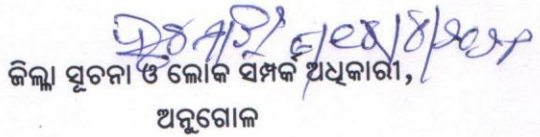 ଜିଲ୍ଲା ସୂଚନା ଓ ଲୋକ ସମ୍ପର୍କ ଅଧିକାରୀ,
ଅନୁଗୋଳ